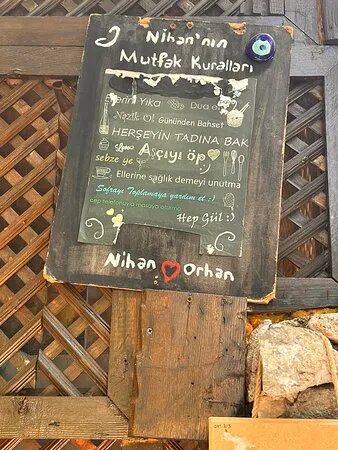 Nihan'nın
Mutfak Kuralları
Yıka Dua
Nazik Ol Gününden Bahset
HERŞEYİN TADINA BAK
Aşçıyı öp
sebze ye
Ellerine sağlık demeyi unutma
Sofrayı Toplamaya yardım et :)
cep telefonuyla masaya oturma
Hep Gül :)
Nihan Orhan